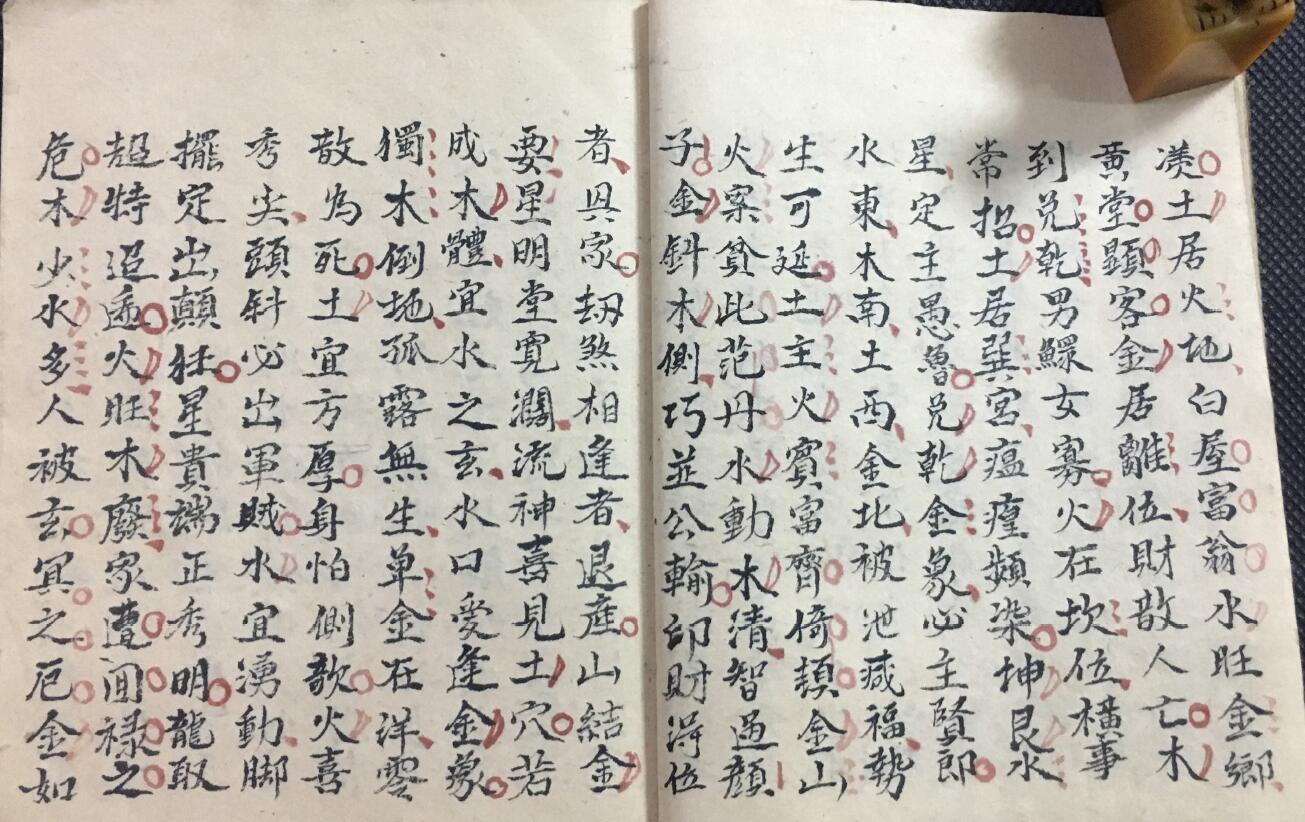 土居火地白屋富翁水旺金鄉
黃堂顯客金居離位財散人亡木
到兌乾男鰥女寡火在坎位橫事
常招土居巽宮瘟㾮頻染坤艮水
星定主愚魯兌乾金象必主賢郎
水東木南土西金北被泄减福勢
生可延土主火賓富齊倚頓金山
火案貧此范丹水動木清智過顏
子金斜木側巧並公輸印財得位
者具家刼煞相逢者退產山結金
要星明堂寬濶流神喜見土穴若
成木體宜水之玄水口愛逢金象
獨木倒地孤露無生单金在洋零
散為死土宜方厚身怕側欹火喜
秀尖頭斜必出軍賊水宜湧動脚
擺定出顛狂星貴端正秀明龍取
超特迢遞火旺木廢家遭囬禄之
危木少水多人被玄冥之厄金如